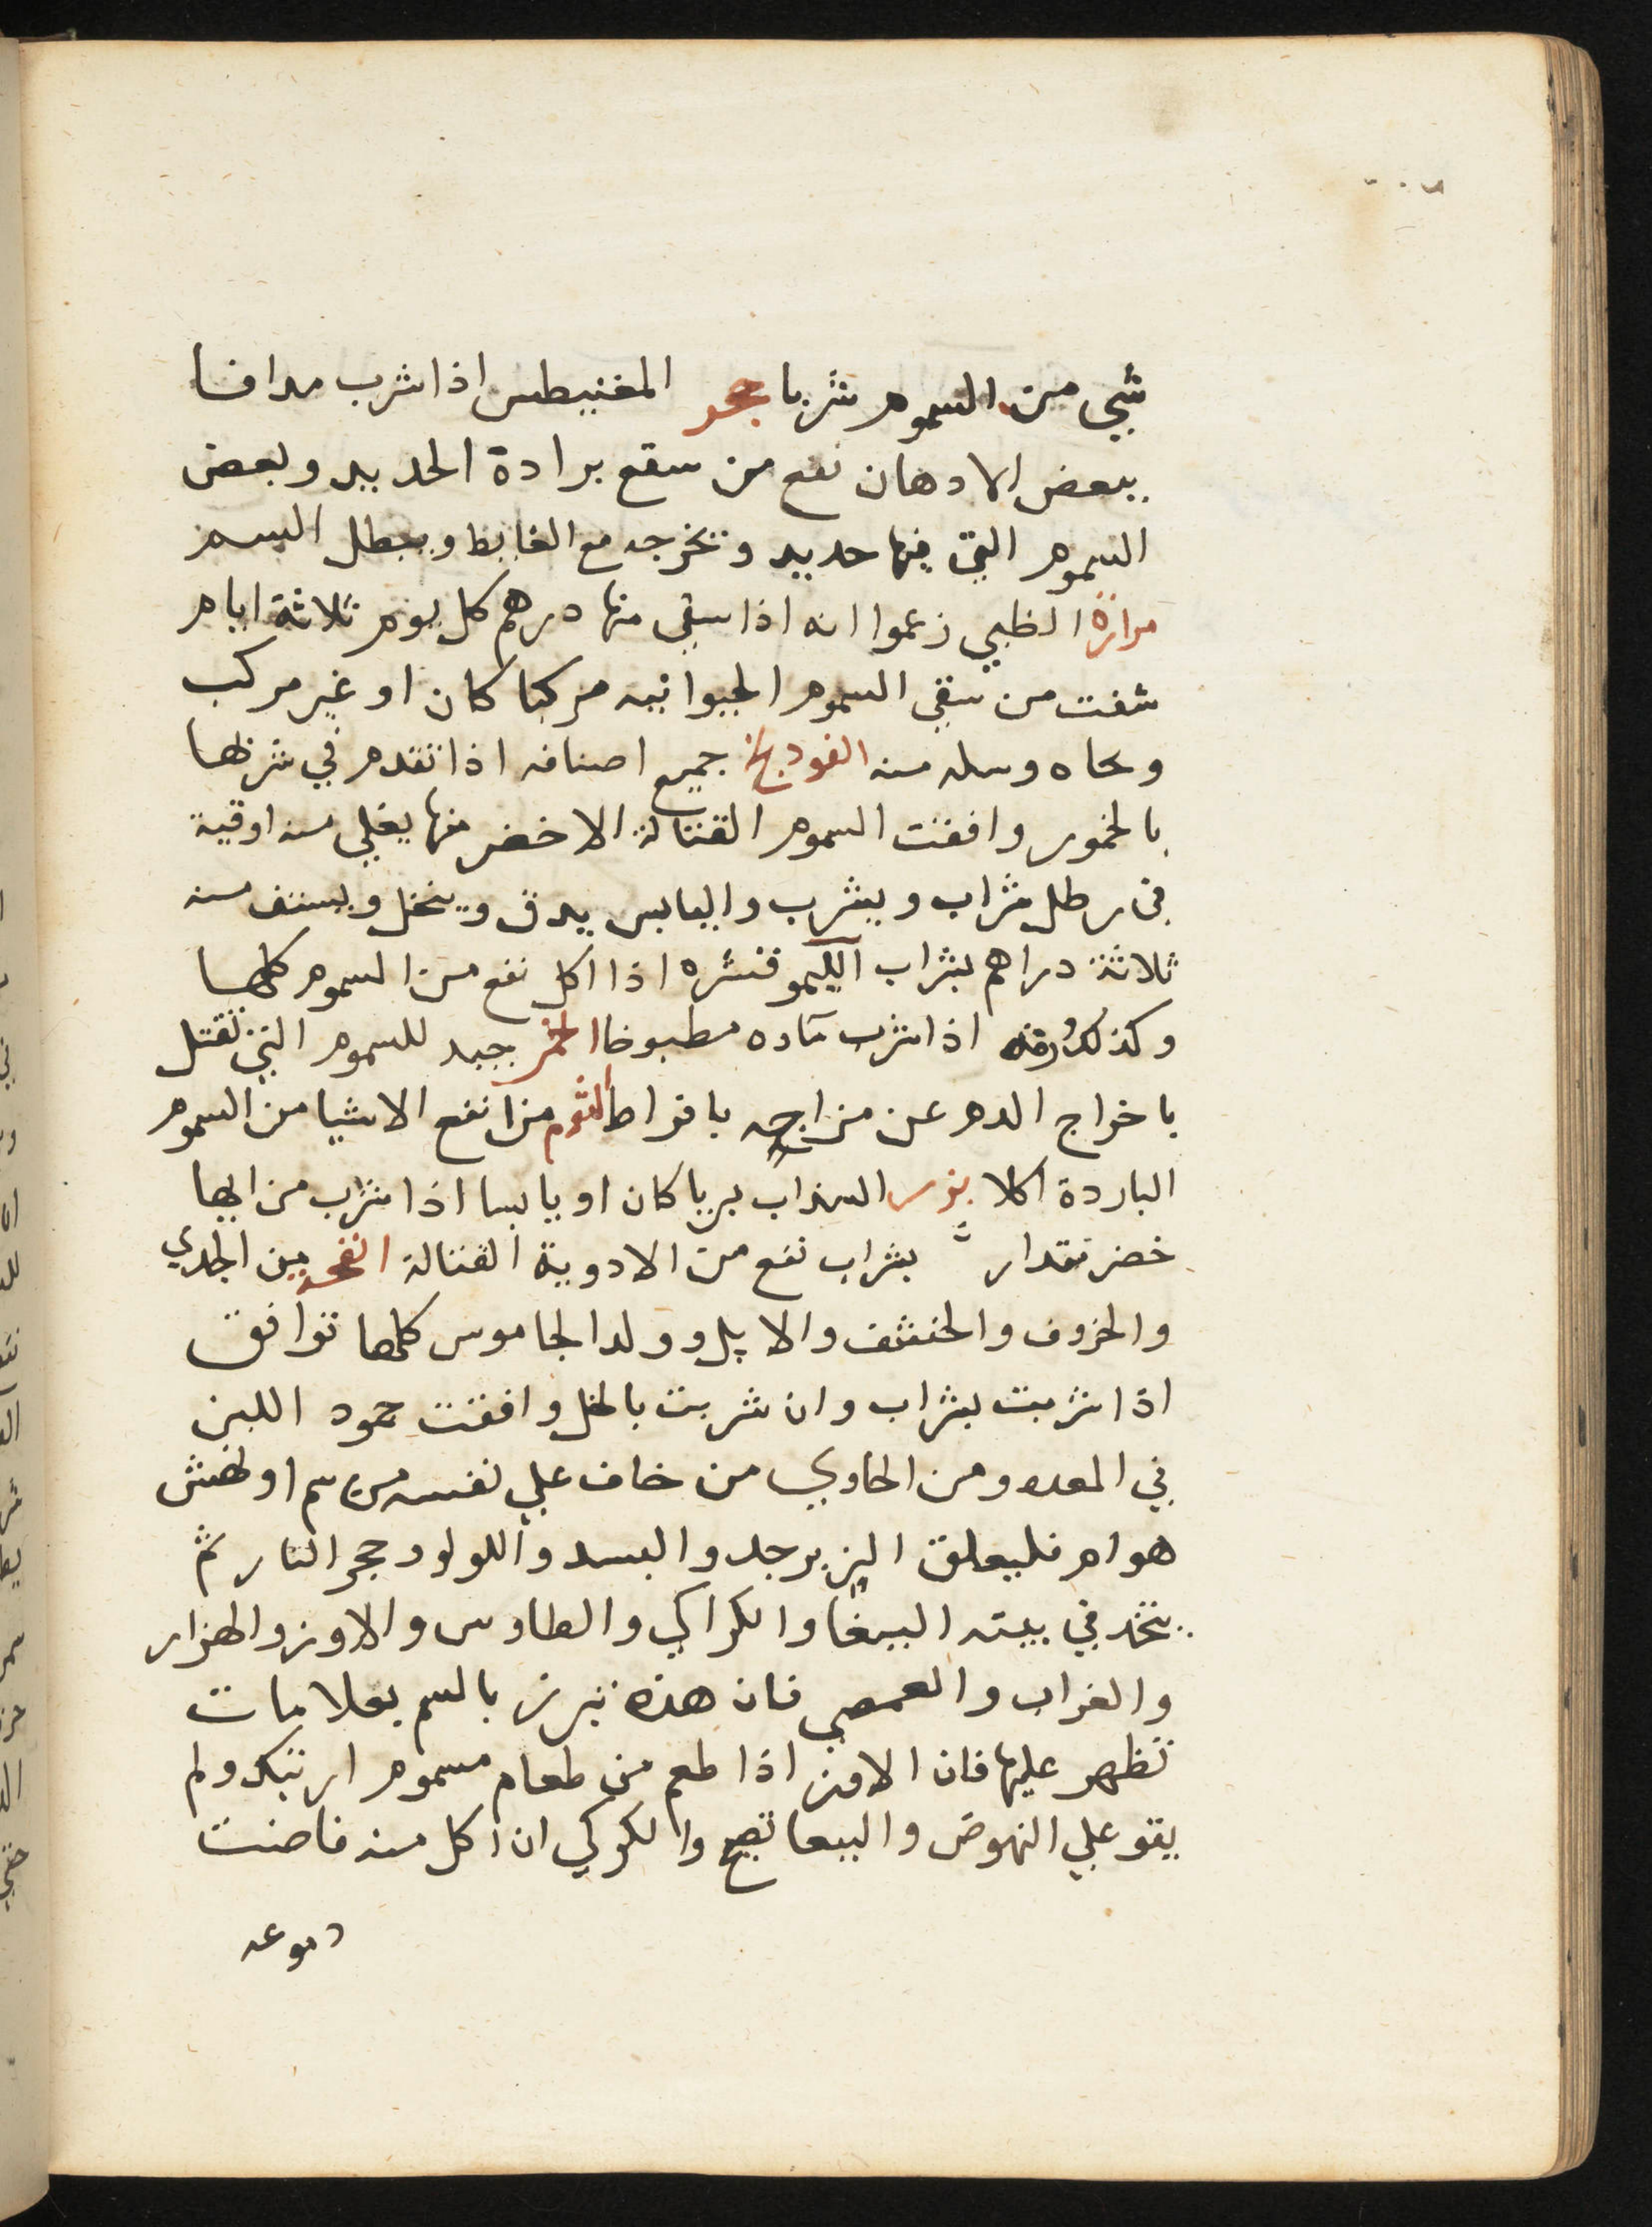 شي من السموم شربا حجر المغنيطس اذا شرب مدافا
ببعض الادهان نفع من سقع برادة الحديد وبعض
السموم التي فيها حديد وتخرجه مع الغايط ويبطل السم
مرارة الظبي زعموا انه اذا سقي منها درهم كل يوم ثلاثة ايام
شفت من سقي السموم الحيوانيه مركبا كان او غير مركب
ونجاه وسله منه الفودنج جميع اصنافه اذا تقدم في شربها
بالخمور وافقت السموم القتالة الاخضر منها يغلي منه اوقية
في رطل شراب ويشرب واليابس يدق وينخل ويستف منه
ثلاثة دراهم بشراب الليمو قشره اذا اكل نفع من السموم كلها
وكذلك ورقه اذا شرب ماوه مطبوخا الخمر جيد للسموم التي تقتل
باخراج الدم عن مزاجه بافراط الثوم من انفع الاشيا من السموم
الباردة اكلا بزر السداب بريا كان او يابسا اذا شرب من ايها
خضر مقدار بشراب نفع من الادوية القتالة انفحه من الجدي
والخروف والخشف والايل وولد الجاموس كلها توافق
اذا شربت بشراب وان شربت بالخل وافقت جمود اللبن
في المعده ومن الحاوي من خاف علي نفسه من سم او نهش
هوام فليعلق الزبرجد والبسد واللولو وحجر النار ثم
يتخذ في بيته الببغا والكراكي والطاوس والاوز والهزار
والغراب والعمصي فان هذه تبرز بالسم بعلامات
تظهر عليها فان الاوز اذا طعم من طعام مسموم ارتبك ولم
يقو علي النهوض والببغا تصيح والكركي ان اكل منه فاضت
دموعه